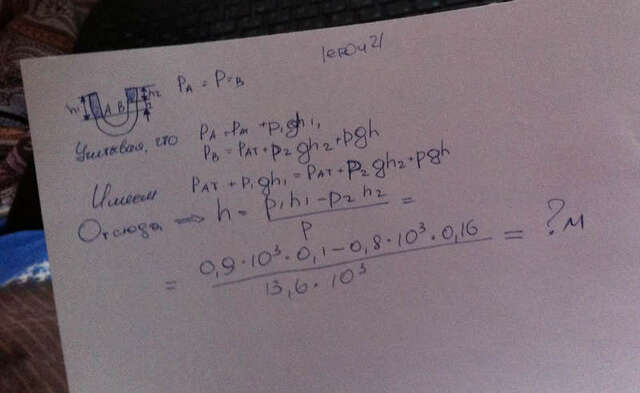 h₁ A B h₂ h
P_A = P=_B
Учитывая, что P_A = P_AT + ρ₁gh₁,
P_B = P_AT + ρ₂gh₂ + ρgh
Имеем P_AT + ρ₁gh₁ = P_AT + ρ₂gh₂ + ρgh
Отсюда ⟹ h = (ρ₁h₁ - ρ₂h₂) / ρ =
= (0,9·10³·0,1 - 0,8·10³·0,16) / (13,6·10³) = ? м